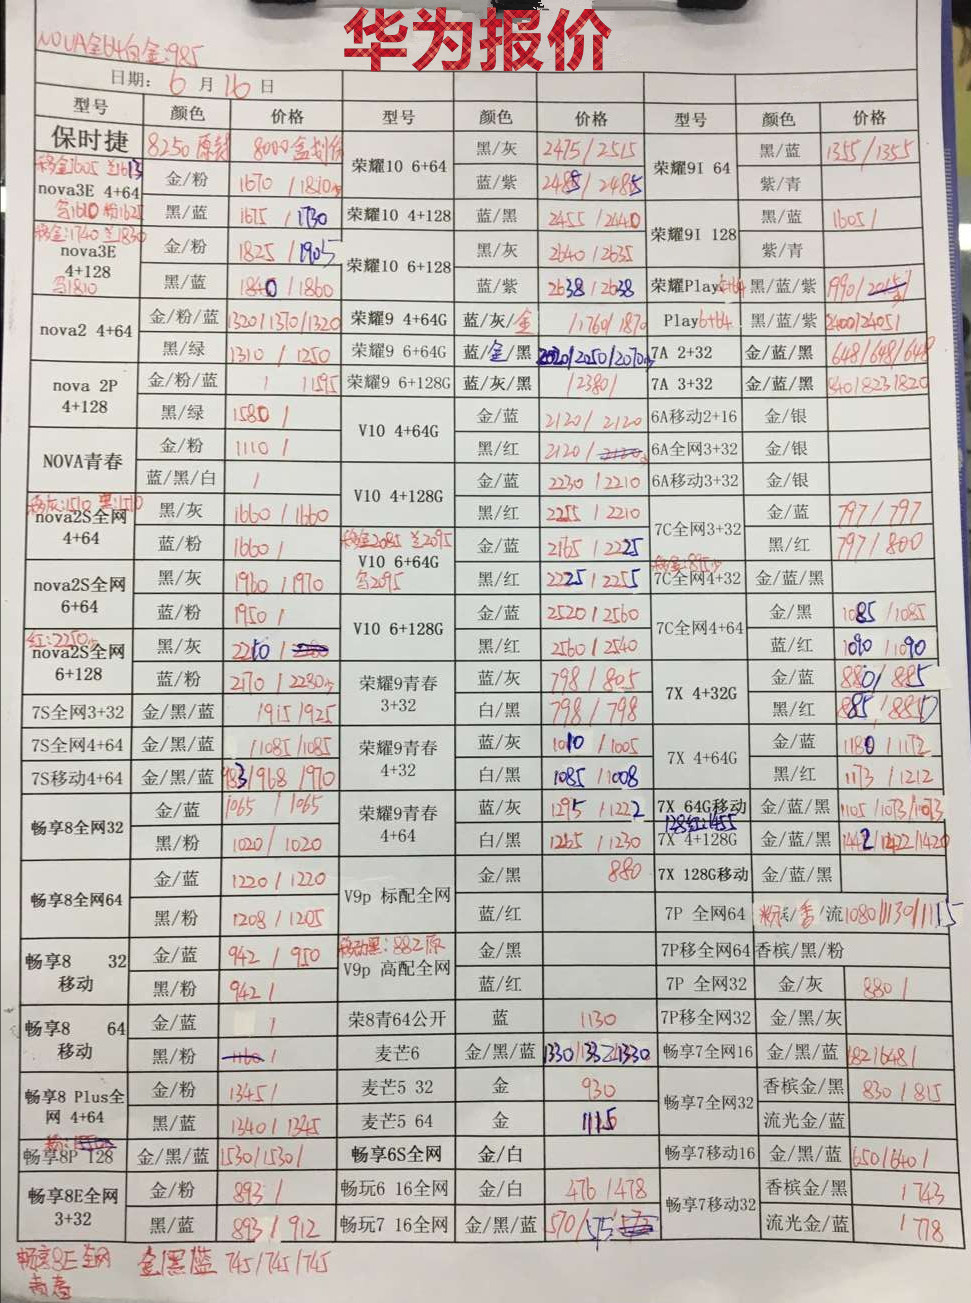 华为报价
NOVA全64白金:985
日期: 6 月 16 日
型号 颜色 价格 型号 颜色 价格 型号 颜色 价格
保时捷 8250原装 荣耀10 6+64 黑/灰 2475/2515 荣耀9I 64 黑/蓝 1355/1355
nova3E 4+64 金/粉 蓝/紫 2485/2485 紫/青
黑/蓝 1675/1730 荣耀10 4+128 蓝/黑 2455/2440 荣耀9I 128 黑/蓝 1605/
nova3E 4+128 金/粉 1825/1905 荣耀10 6+128 黑/灰 2640/2635 紫/青
黑/蓝 1840/1860 蓝/紫 2638/2638 荣耀Play 黑/蓝/紫 1990/
nova2 4+64 金/粉/蓝 1320/1370/1320 荣耀9 4+64G 蓝/灰/金 /1760/1870 Play6+64 黑/蓝/紫 2400/2405/
黑/绿 1310/1250 荣耀9 6+64G 蓝/金/黑 2020/2050/2070 7A 2+32 金/蓝/黑 648/648/648
nova 2P 4+128 金/粉/蓝 荣耀9 6+128G 蓝/灰/黑 /2380/ 7A 3+32 金/蓝/黑 840/823/820
黑/绿 1580/ V10 4+64G 金/蓝 2120/2120 6A移动2+16 金/银
NOVA青春 金/粉 1110/ 黑/红 2120/ 6A全网3+32 金/银
蓝/黑/白 / V10 4+128G 金/蓝 2230/2210 6A移动3+32 金/银
nova2S全网 4+64 黑/灰 1660/1660 黑/红 2255/2210 7C全网3+32 金/蓝 797/797
蓝/粉 1660/ V10 6+64G 金/蓝 2165/2225 黑/红 797/800
nova2S全网 6+64 黑/灰 1960/1970 黑/红 2225/2255 7C全网4+32 金/蓝/黑
蓝/粉 1950/ V10 6+128G 金/蓝 2520/2560 7C全网4+64 金/黑 1085/1085
红:2250
nova2S全网 6+128 黑/灰 黑/红 2560/2540 蓝/红 1090/1090
蓝/粉 2170/2230 荣耀9青春 3+32 蓝/灰 798/805 7X 4+32G 金/蓝 880/885
7S全网3+32 金/黑/蓝 /915/925 白/黑 798/798 黑/红
7S全网4+64 金/黑/蓝 /1085/1085 荣耀9青春 4+32 蓝/灰 1010/1005 7X 4+64G 金/蓝 1180/1172
7S移动4+64 金/黑/蓝 983/968/970 白/黑 1085/1008 黑/红 1173/1212
畅享8全网32 金/蓝 1065/1065 荣耀9青春 4+64 蓝/灰 1295/1222 7X 64G移动 金/蓝/黑 1105/1073/1073
128红:1455
黑/粉 1020/1020 白/黑 1265/1230 7X 4+128G 金/蓝/黑 1442/1422/1420
畅享8全网64 金/蓝 1220/1220 V9p 标配全网 金/黑 880 7X 128G移动 金/蓝/黑
黑/粉 1208/1205 蓝/红 7P 全网64 粉/香/流 1080/1130/1115
畅享8 32 移动 金/蓝 942/950 V9p 高配全网 金/黑 7P移全网64 香槟/黑/粉
黑/粉 942/ 蓝/红 7P 全网32 金/灰 880/
畅享8 64 移动 金/蓝 / 荣8青64公开 蓝 1130 7P移全网32 金/黑/灰
黑/粉 1160/ 麦芒6 金/黑/蓝 1330/1332/1330 畅享7全网16 金/黑/蓝
畅享8 Plus全网 4+64 金/粉 1345/ 麦芒5 32 金 930 畅享7全网32 香槟金/黑 830/815
黑/蓝 1340/1345 麦芒5 64 金 1115 流光金/蓝
畅享8P 128 金/黑/蓝 1530/1530/ 畅享6S全网 金/白 畅享7移动16 金/黑/蓝 650/640/
畅享8E全网 3+32 金/粉 893/ 畅玩6 16全网 金/白 476/478 畅享7移动32 香槟金/黑 /743
黑/蓝 893/912 畅玩7 16全网 金/黑/蓝 570/575/ 流光金/蓝 /778
畅享8E全网 金/黑/蓝 745/745/745
青春